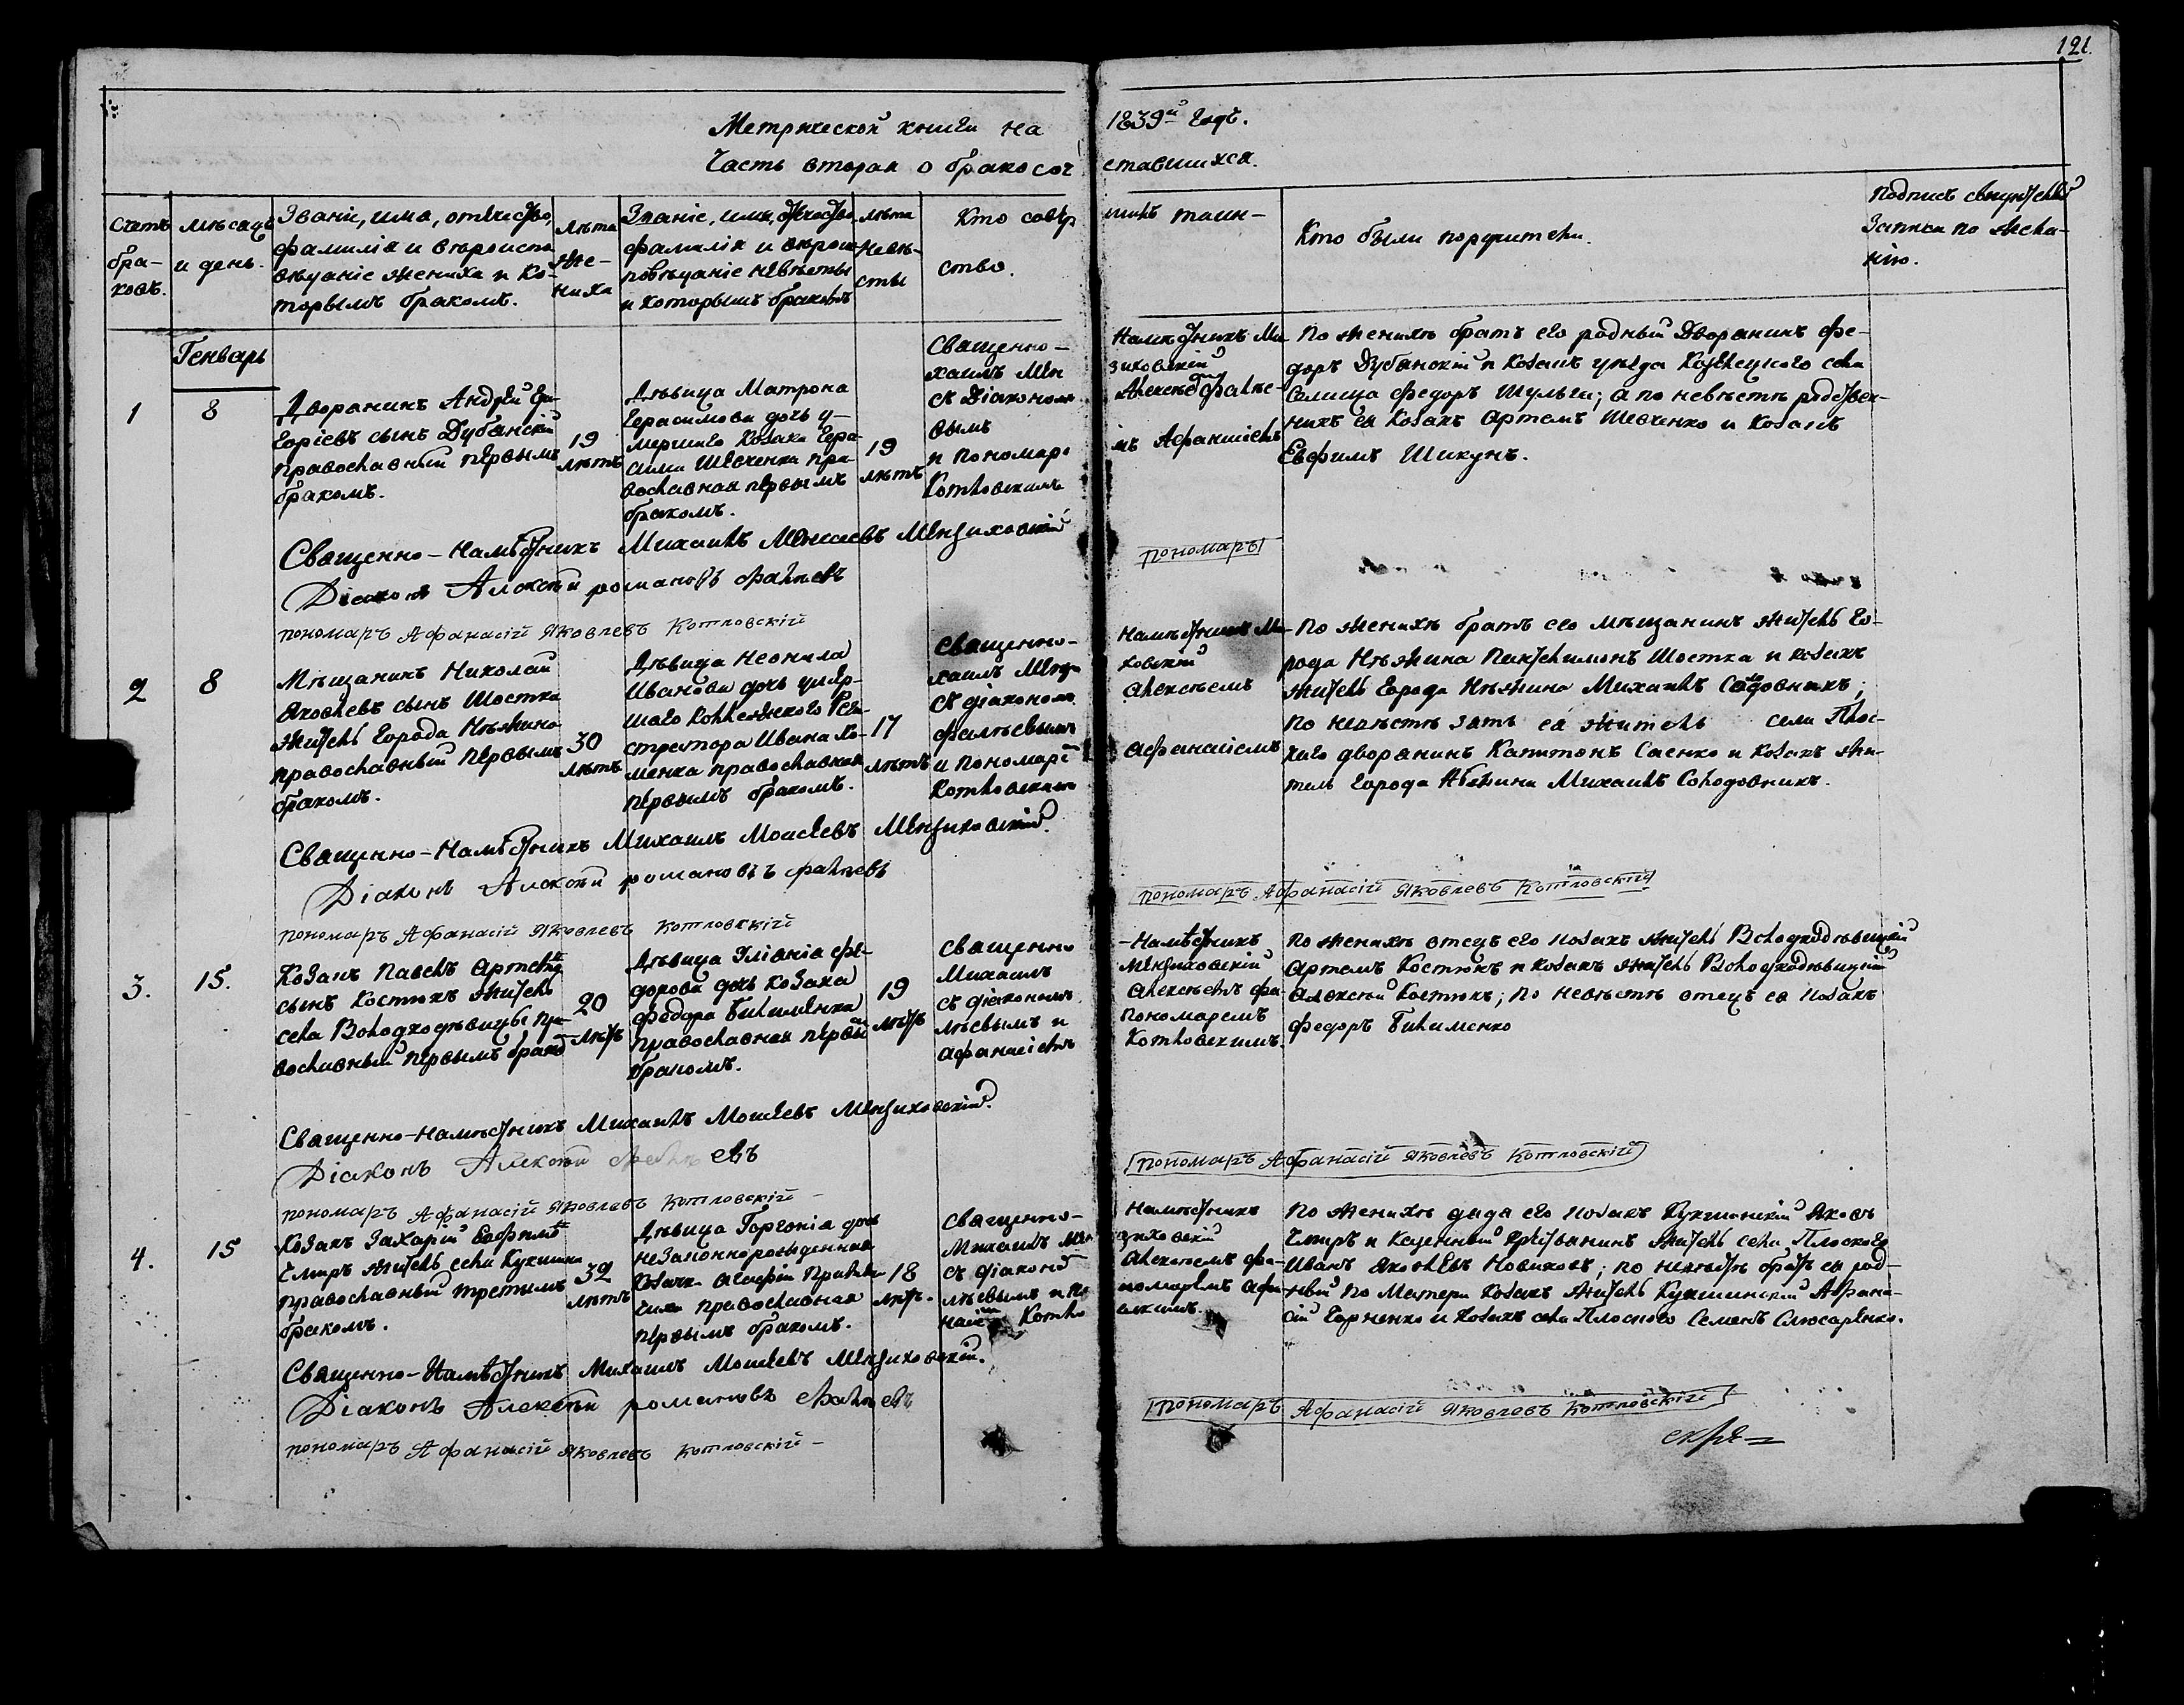 121.
Метрической книги на 1839й годъ.
Часть вторая о бракосочетавшихся.
Счетъ браковъ.
мѣсяцъ и день.
Званіе, имя, отчество,
фамилія и вѣроиспо
вѣданіе жениха и ко-
торымъ бракомъ.
Лѣта
же-
ниха
Званіе, имя, отчество
фамилія и вѣрои-
повѣданіе невѣсты
и которымъ бракомъ
лѣта
невѣ-
сты
Кто совер шилъ таин-
ство.
Кто были поручители.
Подпись свидѣтелей
записи по жела-
нію.
Генварь
1
8
Дворянинъ Андрей Гри-
горіевъ сынъ Дубянскій
православный первымъ
бракомъ.
19
лѣтъ
Дѣвица Матрона
Герасимова дочь у-
мершаго козака Гера-
сима Шевченка пра-
вославная первымъ
бракомъ.
19
лѣтъ
Священно- Намѣстникъ Ми-
хаилъ Мен зиховскій
съ Діакономъ Алексѣемъ Фалѣе-
вымъ
и пономаре мъ Афанасіемъ
Котловскимъ
По женихѣ братъ его родный Дворянинъ Фе-
доръ Дубянскій и козакъ уѣзда Козелецкого села
Селища Федоръ Шульги; а по невѣстѣ родствен-
никъ ея козакъ Артемъ Шевченко и козакъ
Евфимъ Шикунъ.
Священно-Намѣстникъ Михаилъ Моисеевъ Мензиховскій
Діаконъ Алексѣй романовъ Фалѣевъ
пономарь Афанасій Яковлевъ Котловскій
пономарь
2
8
Мѣщанинъ Николай
Яковлевъ сынъ Шостка
житель города Нѣжина
православный первымъ
бракомъ.
30
лѣтъ
Дѣвица Неонила
Иванова дочь умер-
шаго Коллежского Реги-
стратора Ивана Хо-
менка православная
первымъ бракомъ.
17
лѣтъ
Священно- Намѣстникъ Ми-
хаилъ Мензи ховскій
съ діакономъ Алексѣемъ
Фалѣевымъ
и пономаре Афанасіемъ
Котловскимъ
По женихѣ братъ его мѣщанинъ житель го-
рода Нѣжина Пантелимонъ Шостка и козакъ
житель города Нѣжина Михаилъ Солодовникъ;
по невѣстѣ зять ея житель села Плос-
кого дворянинъ Капитонъ Саенко и козакъ жи-
тель города Нѣжина Михаилъ Солодовникъ.
Священно-Намѣстникъ Михаилъ Моисеевъ Мензиховскій.
Діаконъ Алексѣй романовъ Фалѣевъ
пономарь Афанасій Яковлевъ Котловскій
пономарь Афанасій Яковлевъ Котловскій
3.
15.
Козакъ Павелъ Артемовъ
сынъ Костюкъ житель
села Володкодѣвицы пра-
вославный первымъ бракомъ
20
лѣтъ
Дѣвица Уліанія Фе-
дорова дочь козака
Федора Билименка
православная первымъ
бракомъ.
19
лѣтъ
Священно -Намѣстникъ
Михаилъ Мензиховскій
съ діакономъ Алексѣемъ Фа-
лѣевымъ и пономаремъ
Афанасіемъ Котловскимъ.
По женихѣ отецъ его козакъ житель Володкодѣвицкій
Артемъ Костюкъ и козакъ житель Володкодѣвицкій
Алексѣй Костюкъ; по невѣстѣ отецъ ея козакъ
Федоръ Билименко
Священно-Намѣстникъ Михаилъ Моисеевъ Мензиховскій.
Діаконъ Алексѣй Фалѣевъ
пономарь Афанасій Яковлевъ Котловскій
пономарь Афанасій Яковлевъ Котловскій
4.
15
Козакъ Захарій Евфимовъ
Гмиръ житель села Кукшина
православный третьимъ
бракомъ.
32
лѣтъ
Дѣвица Горгонія дочь
незаконнорожденная
козачки
православная
первымъ бракомъ.
18
лѣтъ.
Священно- Намѣстникъ
Михаилъ Мен зиховскій
съ діакономъ Алексѣемъ Фа-
лѣевымъ и по номаремъ Афа-
насіемъ Котло вскимъ.
По женихѣ дядя его козакъ Кукшинскій Яковъ
Гмиръ и казенный крестьянинъ житель села Плоского
Иванъ Яковлевъ Новиковъ; по невѣстѣ братъ ея род-
ный по матери козакъ житель Кукшинскій Афана-
сій Гарненко и козакъ села Плоского Семенъ Слюсаренко.
Священно-Намѣстникъ Михаилъ Моисеевъ Мензиховскій.
Діаконъ Алексѣй романовъ Фалѣевъ
пономарь Афанасій Яковлевъ Котловскій
пономарь Афанасій Яковлевъ Котловскій